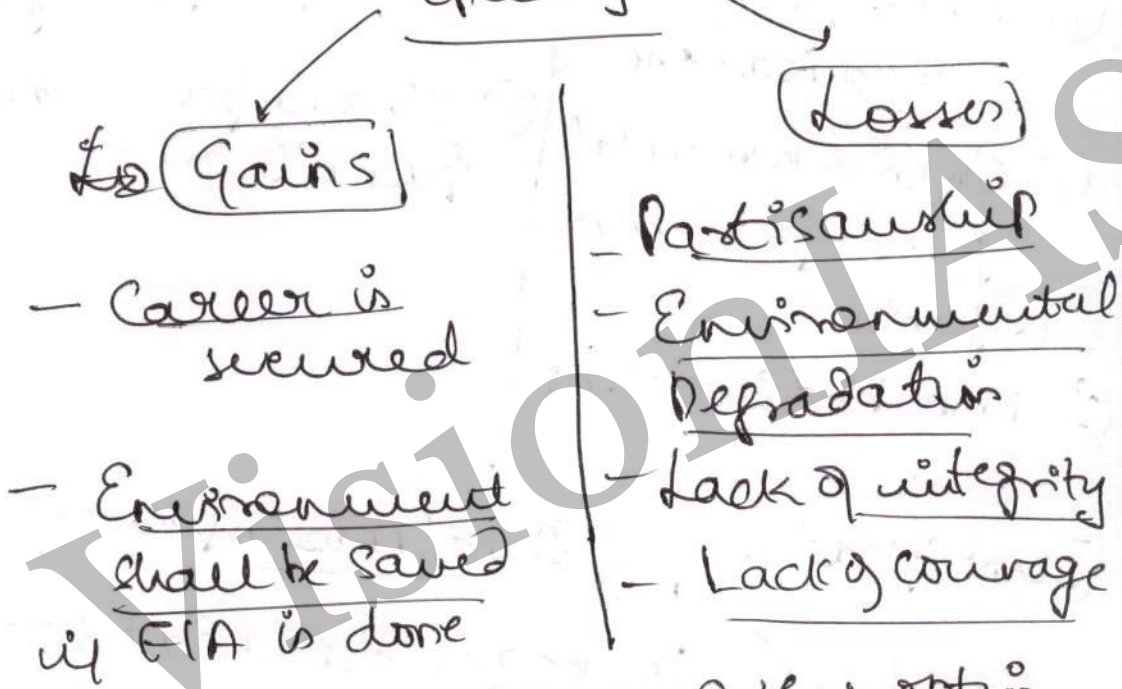 Gains
- Career is
secured
- Environment
shall be saved
if EIA is done
Losses
- Partisanship
- Environmental
Degradation
- Lack of integrity
- Lack of courage
VisionIAS